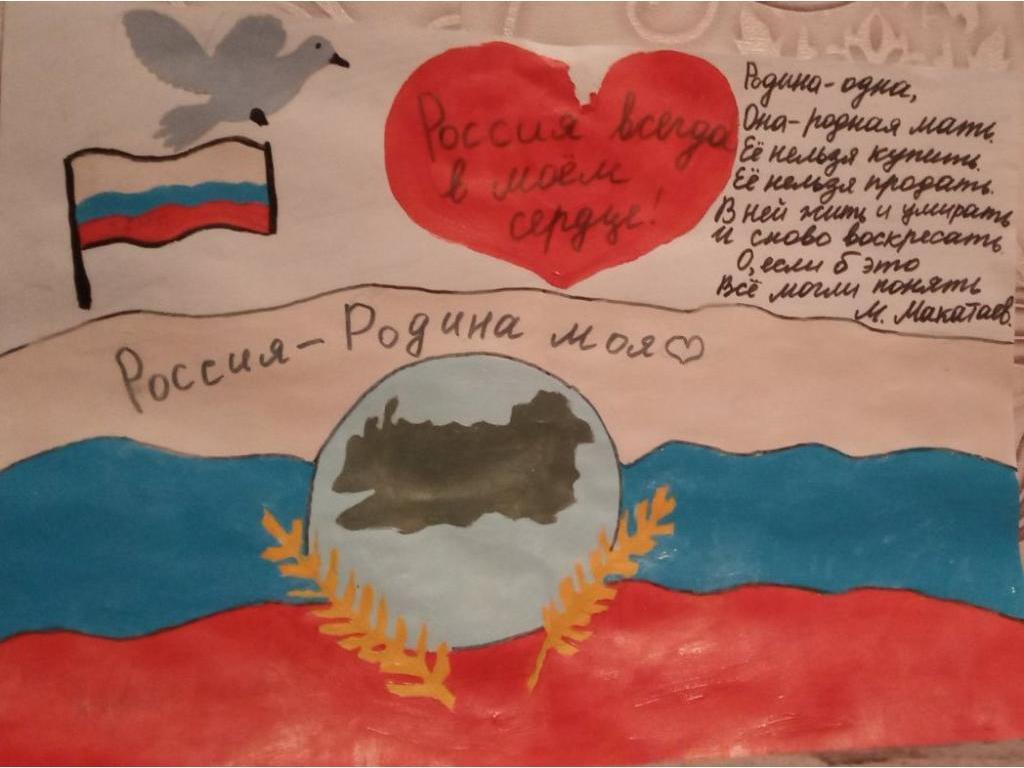 Россия всегда
в моём
сердце!
Родина-одна,
Она-родная мать.
Её нельзя купить.
Её нельзя продать.
В ней жить и умирать
И сново воскресать
О, если б это
Всё могли понять
М. Макатаев.
Россия-Родина моя♡